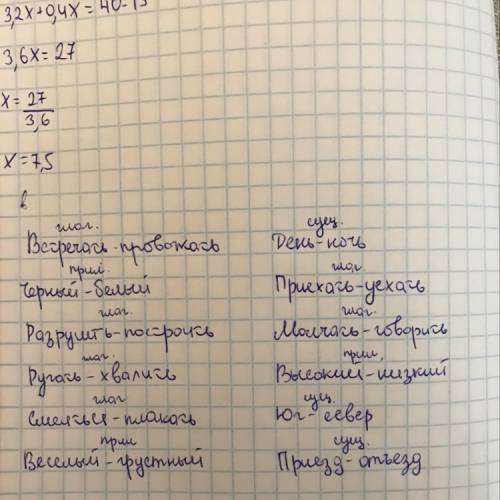 3,2х+0,4х=40-13
3,6х=27
х=27/3,6
х=7,5
глаг.
Встречать-провожать
прил.
Черный-белый
глаг.
Разрушить-построить
глаг.
Ругать-хвалить
глаг
Смеяться-плакать
прил
Веселый-грустный
сущ.
День-ночь
глаг.
Приехать-уехать
глаг.
Молчать-говорить
прил.
Высокий-низкий
сущ.
Юг-север
сущ.
Приезд-отъезд